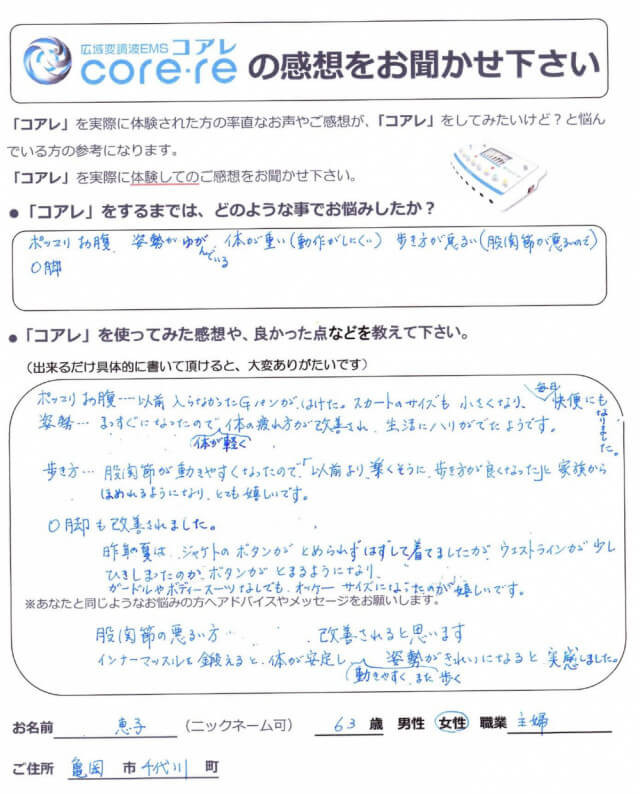 広域変調波EMS コアレ
core・re の感想をお聞かせ下さい
「コアレ」を実際に体験された方の率直なお声やご感想が、「コアレ」をしてみたいけど？と悩ん
でいる方の参考になります。
「コアレ」を実際に体験してのご感想をお聞かせ下さい。
●「コアレ」をするまでは、どのような事でお悩みしたか？
ポッコリお腹、姿勢がゆがんでいる 体が重い(動作がしにくい) 歩き方が悪るい(股関節が悪るいので)
O脚
●「コアレ」を使ってみた感想や、良かった点などを教えて下さい。
（出来るだけ具体的に書いて頂けると、大変ありがたいです）
ポッコリお腹…以前入らなかったGパンがはけた。スカートのサイズも小さくなり、毎日快便にもなりました。
姿勢… まっすぐになったので、体が軽く体の疲れ方が改善され、生活にハリがでたようです。
歩き方… 股関節が動きやすくなったので、「以前より、楽くそうに、歩き方が良くなった」と家族から
ほめれるようになり、とても嬉しいです。
O脚も改善されました。
昨年の夏は、ジャケトのボタンがとめられずはずして着てましたが、ウエストラインが少し
ひきしまったのか、ボタンがとまるようになり、
ガードルやボディースーツなしでも、オッケーサイズになったのが嬉しいです。
※あなたと同じようなお悩みの方へアドバイスやメッセージをお願いします。
股関節の悪るい方 改善されると思います
インナーマッスルを鍛えると、体が安定し、動きやすく、また歩く姿勢がきれいになると実感しました。
お名前 恵子 （ニックネーム可） 63 歳 男性 女性 職業 主婦
ご住所 亀岡 市 千代川 町